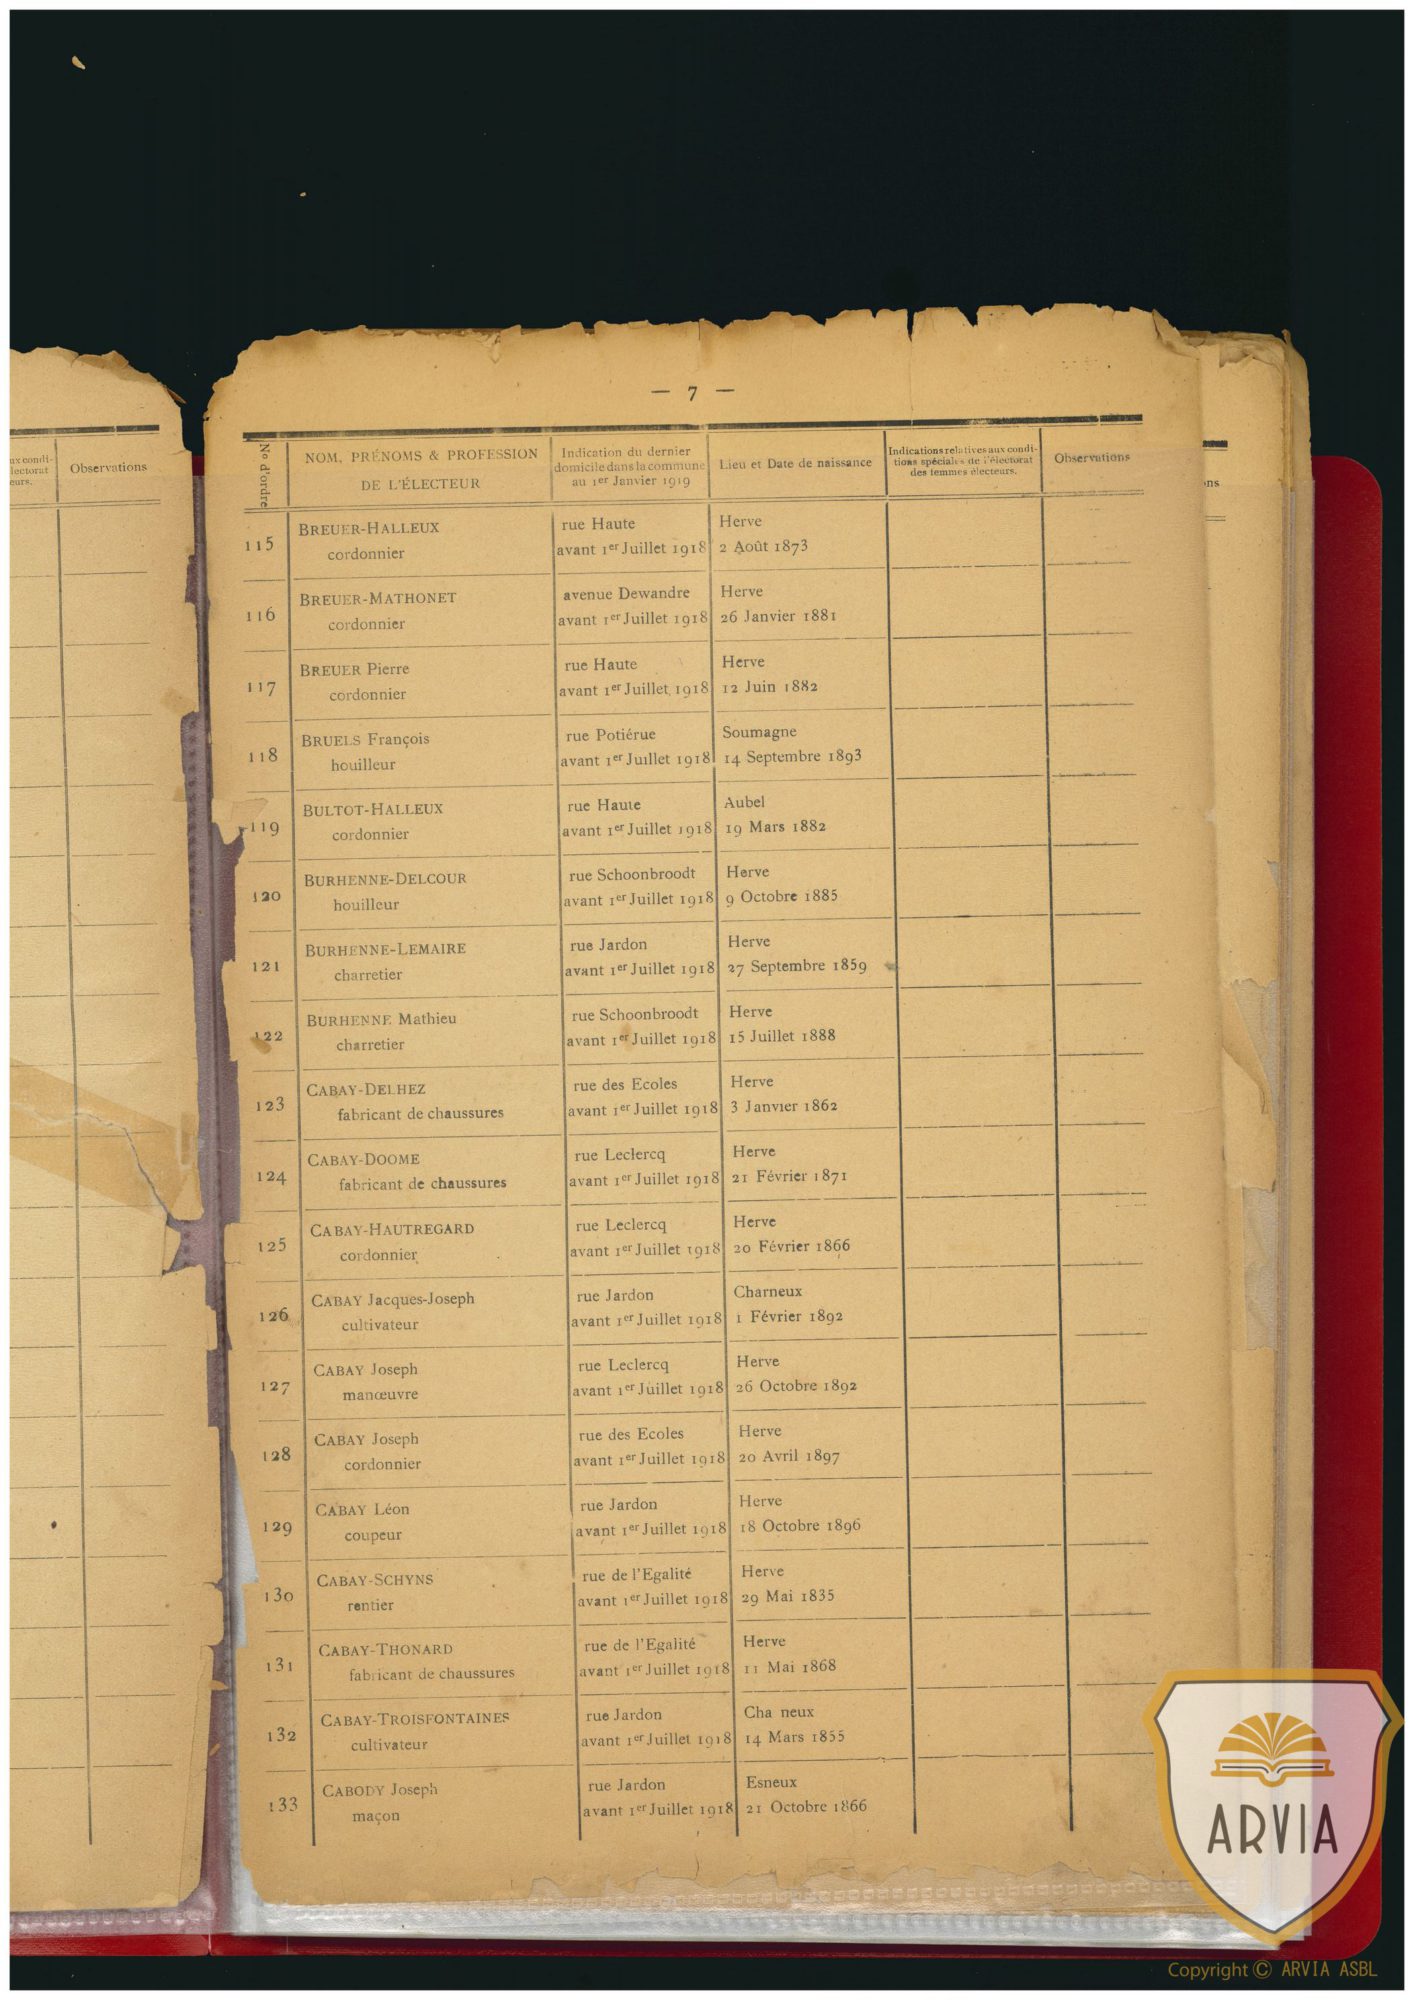 — 7 —
ux condi-
lectorat
eurs.
Observations
N° d'ordre
NOM, PRÉNOMS & PROFESSION
DE L'ÉLECTEUR
Indication du dernier
domicile dans la commune
au 1er Janvier 1919
Lieu et Date de naissance
Indications relatives aux condi-
tions spéciales de l'électorat
des femmes électeurs.
Observations
ns
115 BREUER-HALLEUX rue Haute Herve
cordonnier avant 1er Juillet 1918 2 Août 1873
116 BREUER-MATHONET avenue Dewandre Herve
cordonnier avant 1er Juillet 1918 26 Janvier 1881
117 BREUER Pierre rue Haute Herve
cordonnier avant 1er Juillet 1918 12 Juin 1882
118 BRUELS François rue Potiérue Soumagne
houilleur avant 1er Juillet 1918 14 Septembre 1893
119 BULTOT-HALLEUX rue Haute Aubel
cordonnier avant 1er Juillet 1918 19 Mars 1882
120 BURHENNE-DELCOUR rue Schoonbroodt Herve
houilleur avant 1er Juillet 1918 9 Octobre 1885
121 BURHENNE-LEMAIRE rue Jardon Herve
charretier avant 1er Juillet 1918 27 Septembre 1859
122 BURHENNE Mathieu rue Schoonbroodt Herve
charretier avant 1er Juillet 1918 15 Juillet 1888
123 CABAY-DELHEZ rue des Ecoles Herve
fabricant de chaussures avant 1er Juillet 1918 3 Janvier 1862
124 CABAY-DOOME rue Leclercq Herve
fabricant de chaussures avant 1er Juillet 1918 21 Février 1871
125 CABAY-HAUTREGARD rue Leclercq Herve
cordonnier avant 1er Juillet 1918 20 Février 1866
126 CABAY Jacques-Joseph rue Jardon Charneux
cultivateur avant 1er Juillet 1918 1 Février 1892
127 CABAY Joseph rue Leclercq Herve
manœuvre avant 1er Juillet 1918 26 Octobre 1892
128 CABAY Joseph rue des Ecoles Herve
cordonnier avant 1er Juillet 1918 20 Avril 1897
129 CABAY Léon rue Jardon Herve
coupeur avant 1er Juillet 1918 18 Octobre 1896
130 CABAY-SCHYNS rue de l'Egalité Herve
rentier avant 1er Juillet 1918 29 Mai 1835
131 CABAY-THONARD rue de l'Egalité Herve
fabricant de chaussures avant 1er Juillet 1918 11 Mai 1868
132 CABAY-TROISFONTAINES rue Jardon Cha neux
cultivateur avant 1er Juillet 1918 14 Mars 1855
133 CABODY Joseph rue Jardon Esneux
maçon avant 1er Juillet 1918 21 Octobre 1866
ARVIA
Copyright © ARVIA ASBL